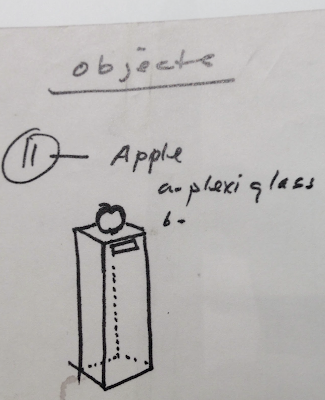 objects
11 — Apple
a- plexi glass
b-